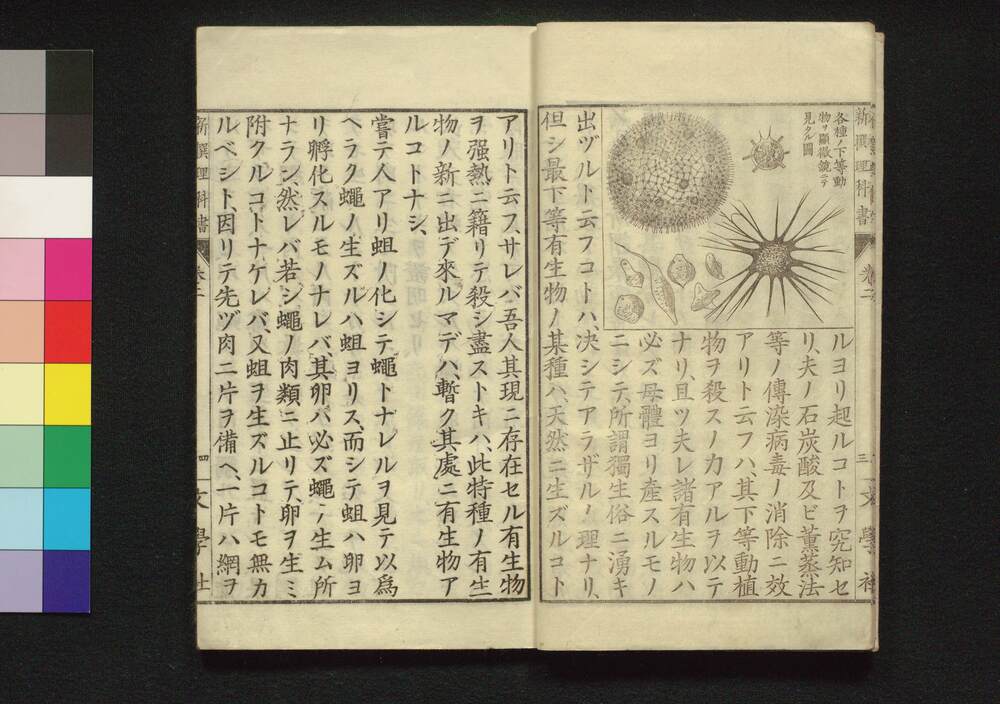 新撰理科書
卷二
三
文學社
各種ノ下等動
物ヲ顯微鏡ニテ
見タル圖
ルヨリ起ルコトヲ究知セ
リ、夫ノ石炭酸及ビ薰蒸法
等ノ傳染病毒ノ消除ニ效
アリト云フハ、其下等動植
物ヲ殺スノ力アルヲ以テ
ナリ、且ツ夫レ諸有生物ハ
必ズ母體ヨリ產スルモノ
ニシテ、所謂獨生俗ニ湧キ
出ヅルト云フコトハ、決シテアラザルノ理ナリ、
但シ最下等有生物ノ某種ハ、天然ニ生ズルコト
アリト云フ、サレバ吾人其現ニ存在セル有生物
ヲ强熱ニ籍リテ殺シ盡ストキハ、此特種ノ有生
物ノ新ニ出デ來ルマデハ、暫ク其處ニ有生物ア
ルコトナシ、
嘗テ人アリ蛆ノ化シテ蠅トナレルヲ見テ以爲
ヘラク蠅ノ生ズルハ蛆ヨリス、而シテ蛆ハ卵ヨ
リ孵化スルモノナレバ、其卵ハ必ズ蠅ノ生ム所
ナラン、然レバ若シ蠅ノ肉類ニ止リテ、卵ヲ生ミ
附クルコトナケレバ、又蛆ヲ生ズルコトモ無カ
ルベシト、因リテ先ヅ肉二片ヲ備ヘ、一片ハ網ヲ
新撰理科書
卷二
四
文學社